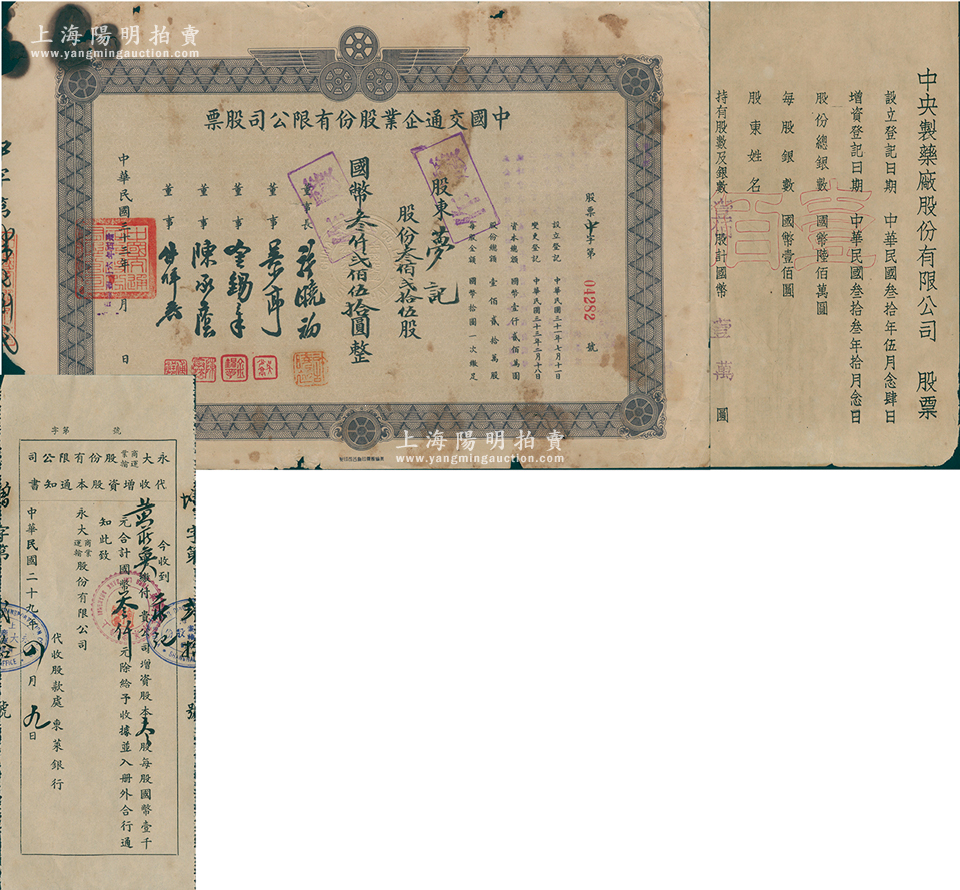 上海陽明拍賣
www.yangmingauction.com
中國交通企業股份有限公司股票
股票中字第 04282 號
設立登記 中華民國三十一年七月十一日
變更登記 中華民國三十三年二月十八日
資本總額 國幣壹仟貳佰萬圓
股份總額 壹佰貳拾萬股
每股金額 國幣拾圓一次繳足
股東 夢記
股份叁佰貳拾伍股
國幣叁仟貳佰伍拾圓整
董事長
董事
董事 金錫年
董事 陳承蔭
董事
中華民國三十三年 月 日
上海陽明拍賣
www.yangmingauction.com
中央製藥廠股份有限公司 股票
設立登記日期 中華民國叁拾年伍月念肆日
增資登記日期 中華民國叁拾叁年拾月念日
股份總銀數 國幣陸佰萬圓
每股銀數 國幣壹佰圓
股東姓名
持有股數及銀數 壹佰 股計國幣 壹萬 圓
字第 號
永大商業運輸股份有限公司
代收增資股本通知書
今收到
繳付 貴公司增資股本 股每股國幣壹千
元合計國幣叁仟元除給予收據並入册外合行通
知此致
永大商業運輸股份有限公司
代收股款處東萊銀行
中華民國二十九年四月九日